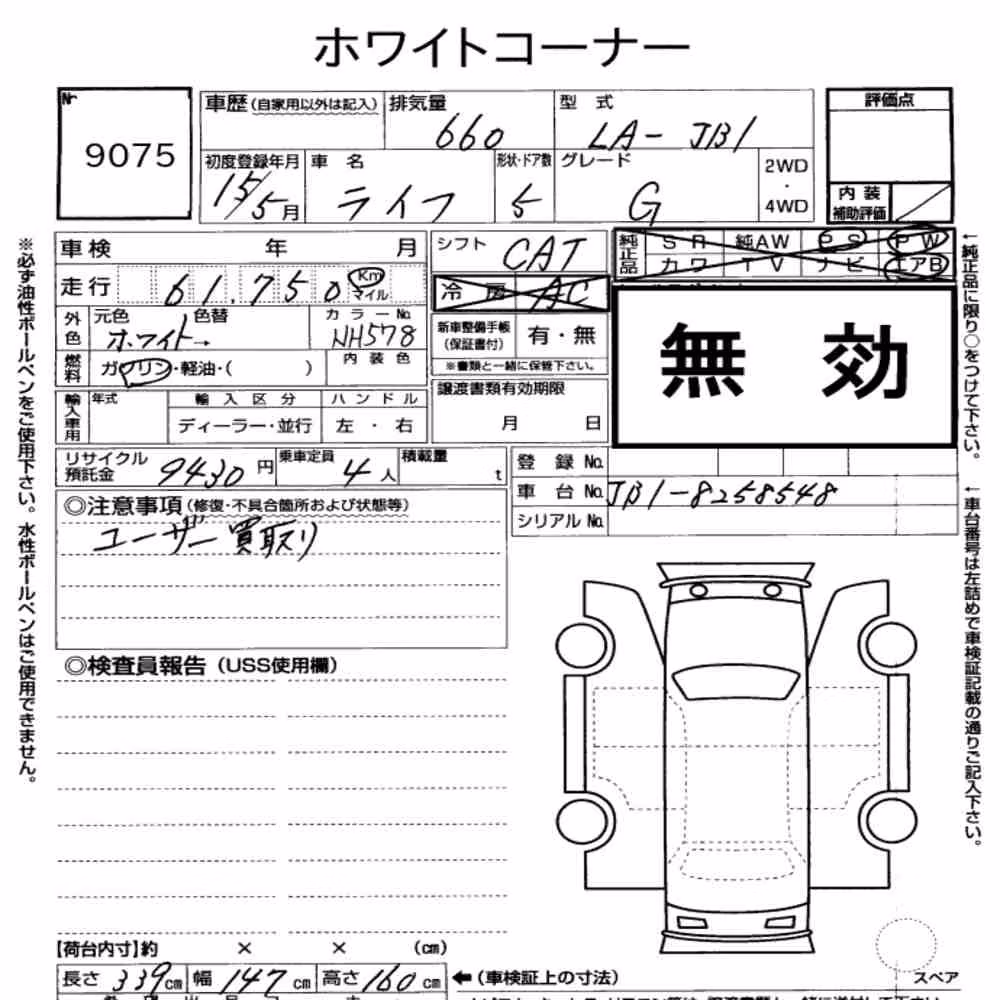 ホワイトコーナー
Nr 9075
車歴(自家用以外は記入)
排気量 660
型式 LA-JB1
評価点
初度登録年月 15/5月
車名 ライフ
形状・ドア数 5
グレード G
2WD・4WD
内装補助評価
車検 年 月
シフト CAT
純正品 SR 純AW PS PW
カワ TV ナビ エアB
走行 61.750 Km マイル
冷房 AC
外色 元色 ホワイト→ 色替
カラーNo. NH578
新車整備手帳(保証書付) 有・無
※書類と一緒に保管下さい。
無効
燃料 ガソリン・軽油・( )
内装色
輸入車用 年式 輸入区分 ハンドル
ディーラー・並行 左・右
譲渡書類有効期限
月 日
リサイクル預託金 9430円
乗車定員 4人
積載量 t
登録No.
車台No. JB1-8258548
シリアルNo.
◎注意事項(修復・不具合箇所および状態等)
ユーザー買取り
◎検査員報告(USS使用欄)
【荷台内寸】約 × × (cm)
長さ 339cm 幅 147cm 高さ 160cm ←(車検証上の寸法)
スペア
※必ず油性ボールペンをご使用下さい。水性ボールペンはご使用できません。
←純正品に限り○をつけて下さい。
←車台番号は左詰めで車検証記載の通りご記入下さい。